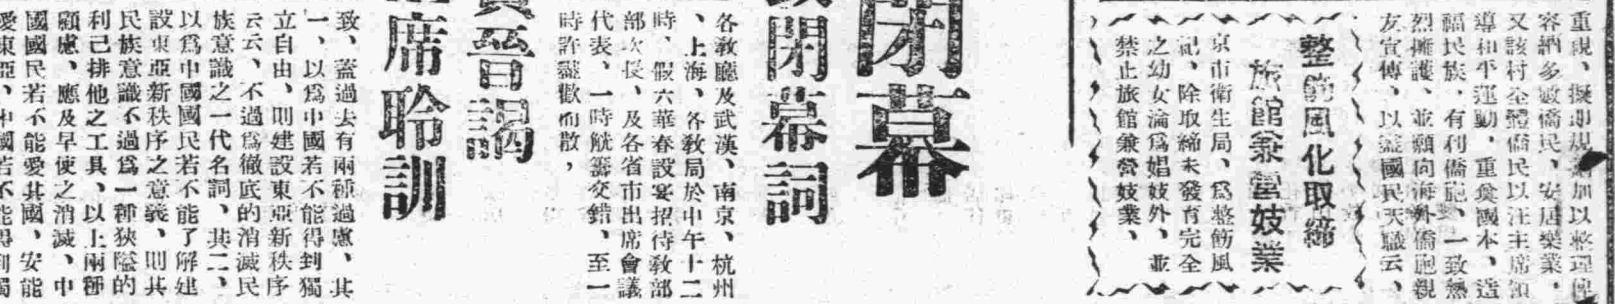 重視、擬即規劃加以整理俾
容納多數僑民、安居樂業、
又該村全體僑民以汪主席領
導和平運動、重奠國本、造
福民族、有利僑胞、一致熱
烈擁護、並願向海外僑胞親
友宣傳、以盡國民天職云、
整飭風化取締
旅館兼營妓業
京市衛生局、爲整飭風
記、除取締未發育完全
之幼女淪爲娼妓外、並
禁止旅館兼營妓業、
閉幕
閉幕詞
各教廳及武漢、南京、杭州
、上海、各教局於中午十二
時、假六華春設宴招待教部
部次長、及各省市出席會議
代表、一時觥籌交錯、至一
時許盡歡而散，
晉謁
席聆訓
致、蓋過去有兩種過慮、其
一、以爲中國若不能得到獨
立自由、則建設東亞新秩序
云云、不過爲徹底的消滅民
族意識之一代名詞、其二、
以爲中國國民若不能了解建
設東亞新秩序之意義、則其
民族意識不過爲一種狹隘的
利己排他之工具、以上兩種
顧慮、應及早使之消滅、中
國國民若不能愛其國、安能
愛東亞、中國若不能得到獨